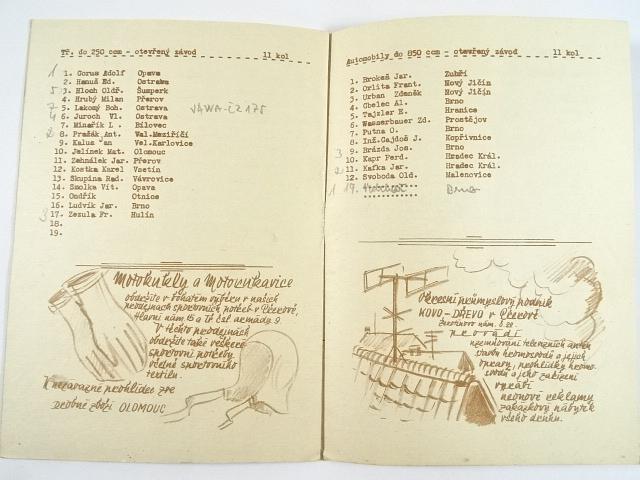 Tř. do 250 ccm - otevřený závod 11 kol
1 1. Gorus Adolf Opava
2. Hanuš Ed. Ostrava
5 3. Hloch Oldř. Šumperk
4. Hrubý Milan Přerov
7 5. Lakomý Boh. Ostrava JAWA-ČZ 175
4 6. Juroch Vl. Ostrava
7. Minařík L. Bílovec
2 8. Pražák Ant. Val.Meziříčí
9. Kalus Jan Vel.Karlovice
10. Jelínek Mat. Olomouc
11. Zehnálek Jar. Přerov
12. Kostka Karel Vsetín
13. Skupina Rad. Vávrovice
14. Smolka Vít. Opava
15. Ondřik Otnice
16. Ludvík Jar. Brno
3 17. Zezula Fr. Hulín
18.
19.
Motokukly a Motorukavice
obdržíte v bohatém výběru v našich
prodejnách sportovních potřeb v Přerově,
Hlavní nám. 15 a Tř. čsl. armády 9.
V těchto prodejnách
obdržíte také veškeré
sportovní potřeby
včetně sportovního
textilu.
K nezávazné prohlídce zve
drobné zboží OLOMOUC
Automobily do 850 ccm - otevřený závod 11 kol
1. Brokeš Jar. Zubří
2. Orlita Frant. Nový Jičín
3. Urban Zdeněk Nový Jičín
4. Gbelec Al. Brno
5. Tajzler E. Hranice
6. Wasserbauer Zd. Prostějov
7. Putna O. Brno
8. Inž.Gajdoš J. Kopřivnice
3 9. Brázda Jos. Brno
10. Kapr Ferd. Hradec Král.
2 11. Kafka Jar. Hradec Král.
12. Svoboda Old. Malenovice
1 19. Brno
Okresní průmyslový podnik
KOVO-DŘEVO v Přerově
Žerotínovo nám. č.
provádí
uzemňování televizních antén
stavbu hromosvodů a jejich
opravy, prohlídky hromo-
svodů a jeho zařízení
vyrábí
neonové reklamy
zakázkový nábytek
všeho druhu.